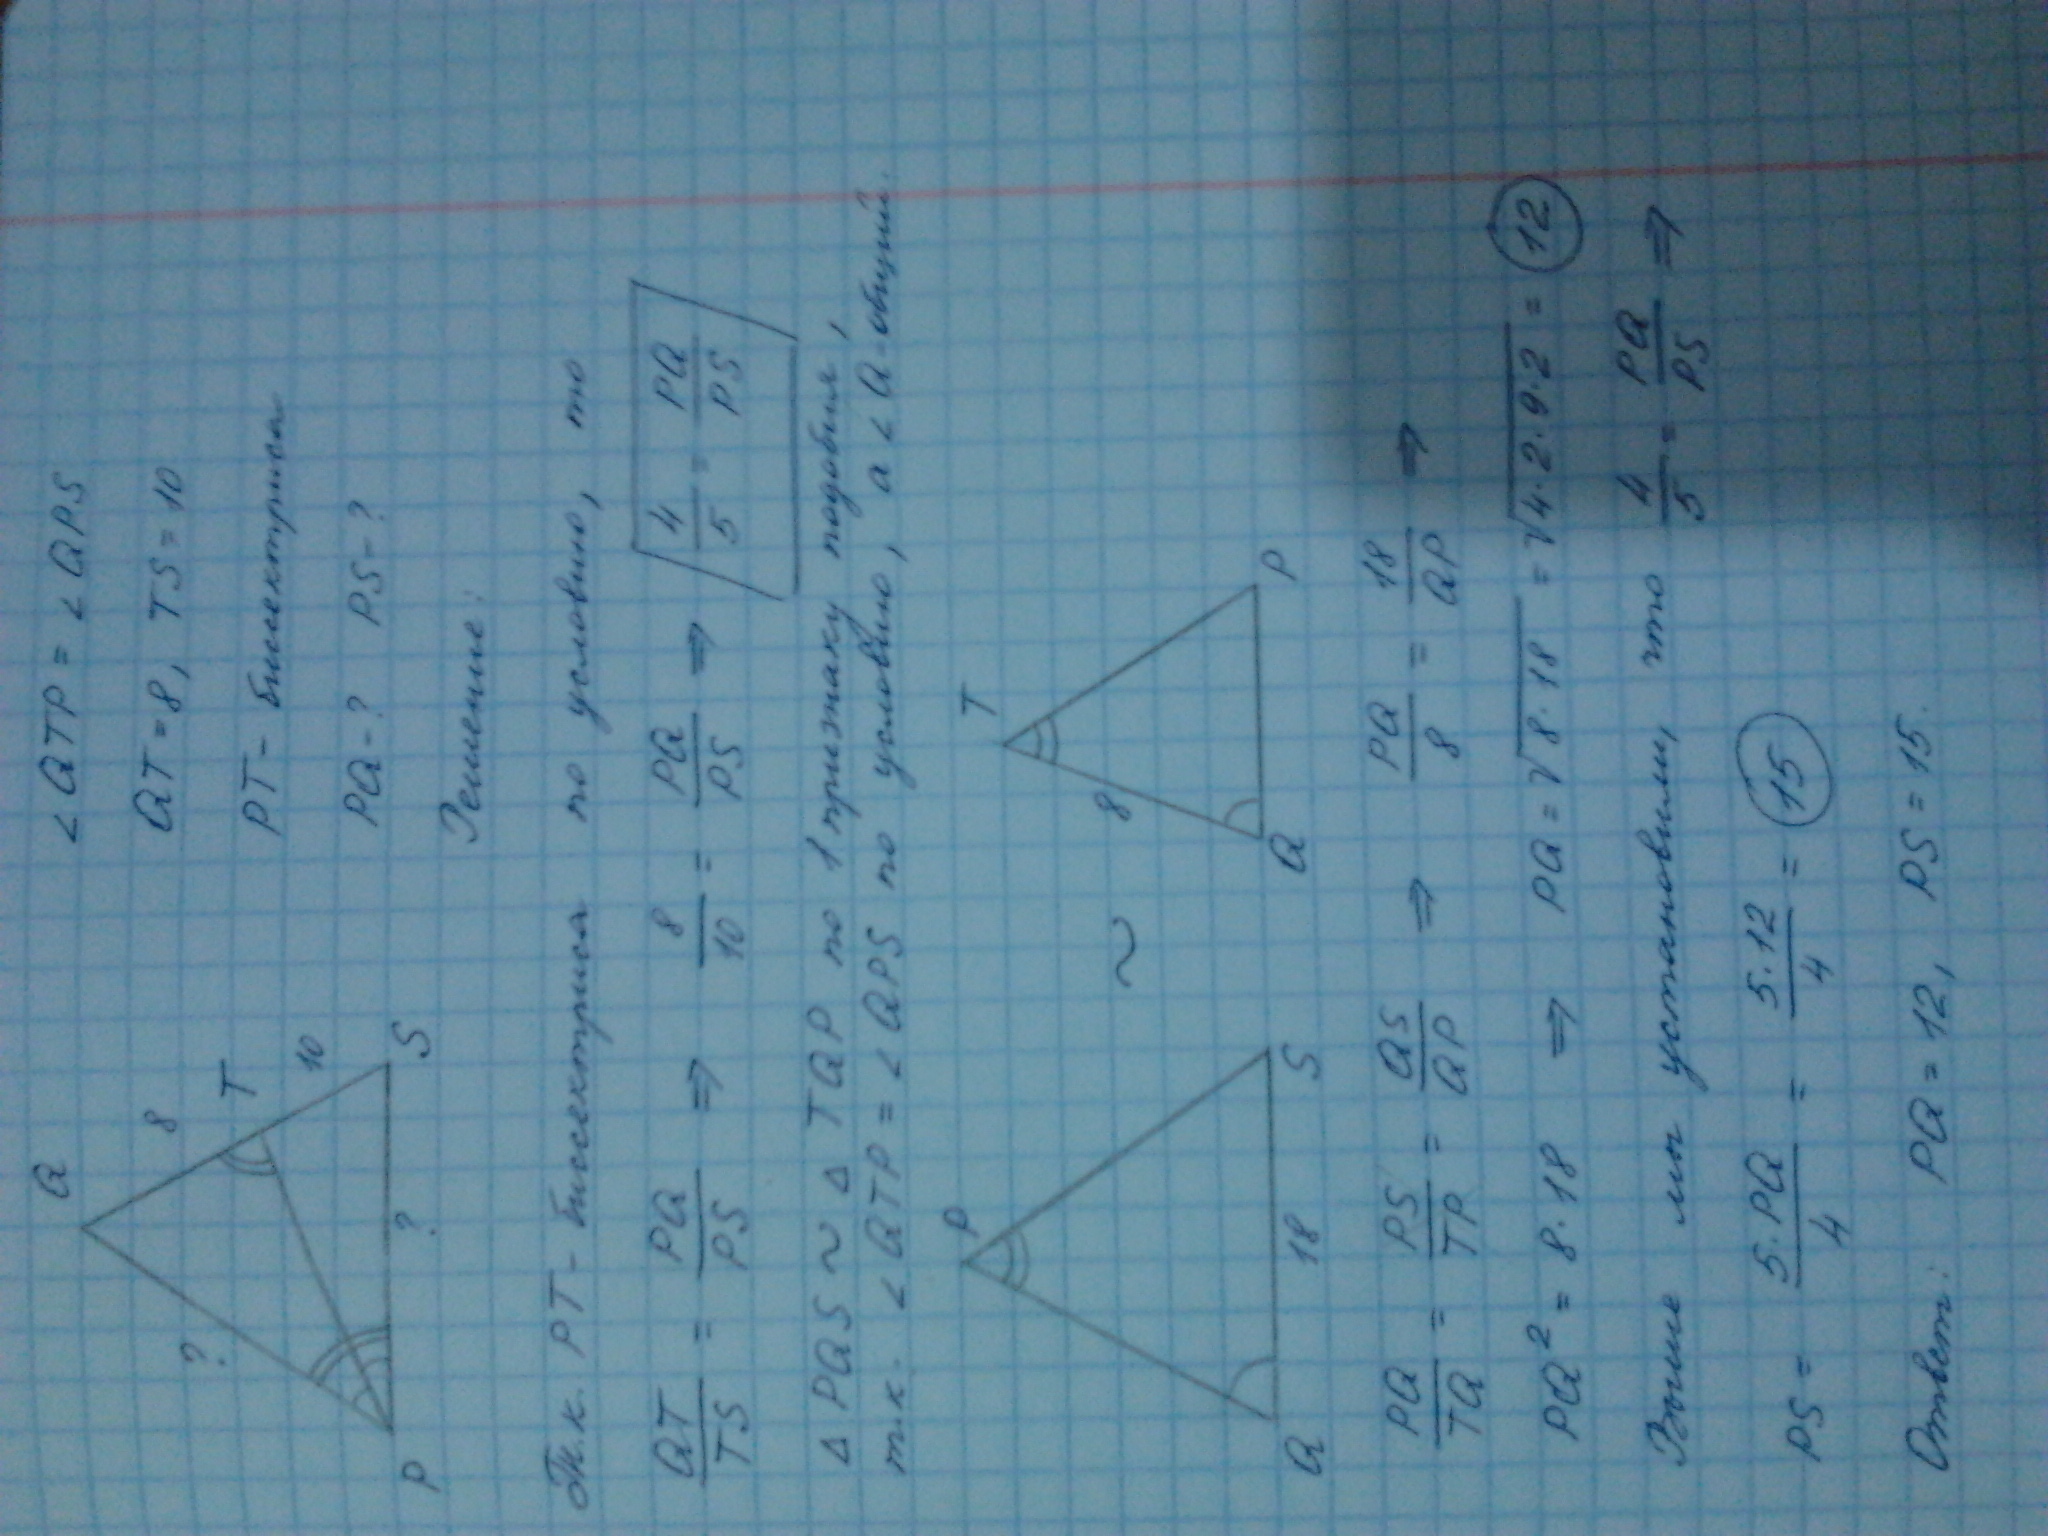 Q
8
T
10
S
?
P
?
∠QTP = ∠QPS
QT = 8, TS = 10
PT - биссектриса
PQ - ? PS - ?
Решение:
Т.к. PT - биссектриса по условию, то
QT/TS = PQ/PS ⇒ 8/10 = PQ/PS ⇒ 4/5 = PQ/PS
Δ PQS ~ Δ TQP по 1 признаку подобия,
т.к. ∠QTP = ∠QPS по условию, а ∠Q - общий.
P
Q
18
S
~
T
8
Q
P
PQ/TQ = PS/TP = QS/QP ⇒ PQ/8 = 18/QP ⇒
PQ² = 8·18 ⇒ PQ = √8·18 = √4·2·9·2 = 12
Выше мы установили, что 4/5 = PQ/PS ⇒
PS = 5·PQ/4 = 5·12/4 = 15
Ответ: PQ = 12, PS = 15.